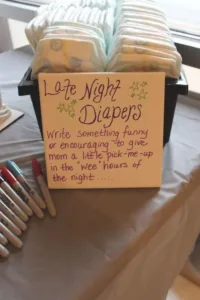 Late Night
Diapers
Write something funny
or encouraging to give
mom a little pick-me-up
in the "wee" hours of
the night.....